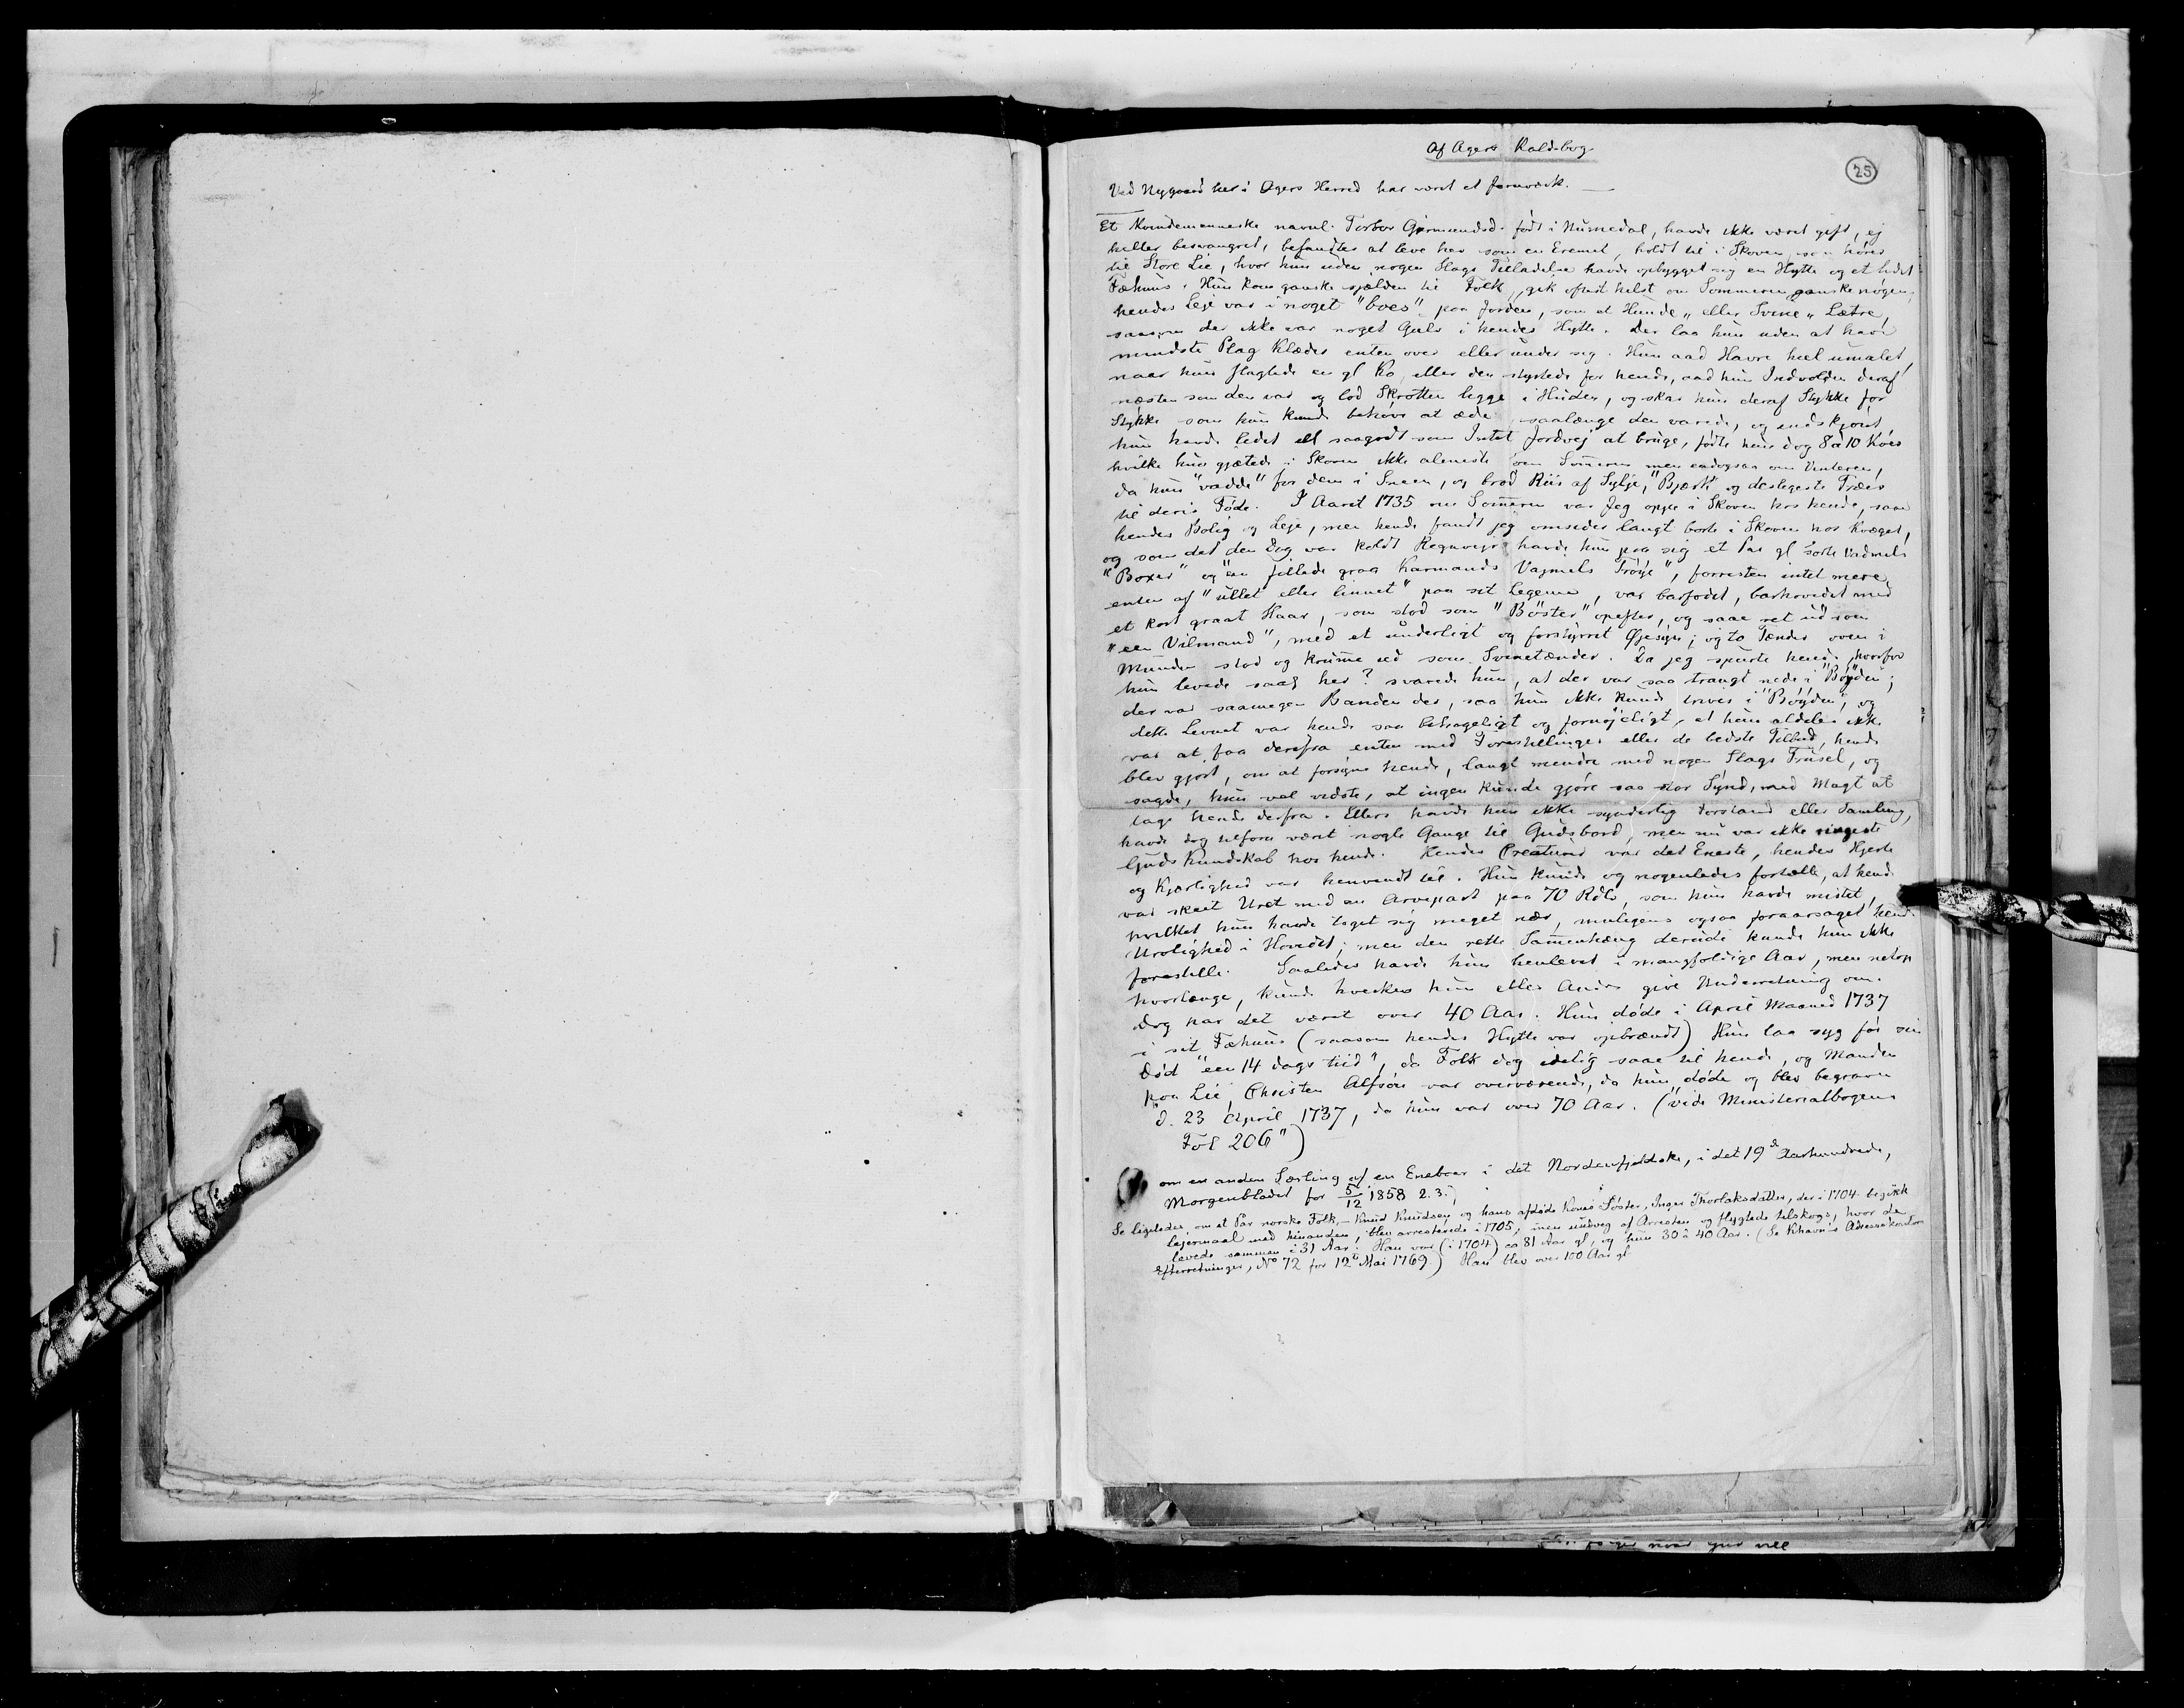 Af Agers Kaldsbog
25
Ved Nygaard her i Agers Herred har været et Jernværk. —
Et Kvindemenneske navnl. Torbor Gjermundsd. født i Numedal, havde ikke været gift, ej
heller besvangret, befandtes at leve her som en Eremit, holdt til i Skoven, som hører
til Store Lie, hvor hun uden nogen Slags Tilladelse havde opbygget sig en Hytte og et lidet
Fæhuus. Hun kom ganske sjælden til Folk, gik oftest helst om Sommeren ganske nøgen,
hendes Leje var i noget "boes" paa Jorden, som et Hunde- eller Svine-Lætre,
saasom der ikke var noget Gulv i hendes Hytte. Der laa hun uden at have
mindste Plag Klæder enten over eller under sig. Hun aad Havre heel umalet,
naar hun slagtede en gl Ko, eller den styrtede for hende, aad hun Indvolden deraf
næsten som den var og lod Skrotten legge i Huden, og skar hun deraf Stykke for
Stykke som hun kunde behøve at æde, saalænge den varede, og endskjønt
hun havde lidet ell saagodt som Intet Jordvej at bruge, fødte hun dog 8 a 10 Kør
hvilke hun gjætede i Skoven ikke aleneste om Sommeren men endogsaa om Vinteren,
da hun "vadde" for dem i Sneen, og brød Riis af Sylje, "Bjærk" og deslegeste Træer
til deris Føde. I Aaret 1735 om Sommeren var Jeg oppe i Skoven hos hende, saae
hendes Bolig og Leje, men hende fandt jeg omsider langt borte i Skoven hos Kvæget,
og som det den Dag var koldt Regnvejr havde hun paa sig et Par gl sorte Vadmels
"Boxer" og "en fillede graa Karmands Vagmels Trøye", forresten intet mere,
enten af "ullet eller linnet" paa sit Legeme, var barfodet, barhovedet med
et kort graat Haar, som stod som "Bøster" opefter, og saae ret ud som
"een Vilmand", med et underligt og forstyrret Øjesyn; og to Tænder oven i
Munden stod og krumme ud som Svinetænder. Da jeg spurte hende, hvorfor
hun levede saa her? svarede hun, at der var saa trangt nede i "Bøyden";
der var saamegen Banden der, saa hun ikke kunde trives i "Bøyden", og
dette Levnet var hende saa behageligt og fornøjeligt, at hun aldeles ikke
var at faa derifra enten med Forestillinger eller de bedste Tilbud, hende
blev gjort, om at forsyne hende, langt mendre med nogen Slags Trusel, og
sagde, hun vel vidste, at ingen kunde gjøre saa stor Synd, med Magt at
tage hende derfra. Ellers havde hun ikke synderlig Forstand eller Samling,
havde dog tilforn været nogle Gange til Gudsbord, men nu var ikke ringeste
Guds Kundskab hos hende. Hendes Creaturer var det Eneste, hendes Hjerte
og Kjærlighed var henvendt til. Hun kunde og nogenledes fortælle, at hende
var skeet Uret med en Arvepart paa 70 Rdlr, som hun havde mistet,
hvilket hun havde taget sig meget nær, muligens ogsaa foraarsaget hende
Urolighed i Hovedet; men den rette Sammenhæng derudi kunde hun ikke
forestille. Saaledes havde hun henlevet i mangfoldige Aar, men netop
hvorlænge, kunde hverken hun eller Andre give Underretning om.
Dog har det været over 40 Aar. Hun døde i April Maaned 1737
i sit Fæhuus (saasom hendes Hytte var opbrændt) Hun laa syg før sin
Død "een 14 dags tiid", da Folk dog idelig saae til hende, og Manden
paa Lie, Christen Alfsøn var overværende, da hun døde og blev begraven
d. 23 April 1737, da hun var over 70 Aar. (vide Ministerialbogens
Fol 206")
om en anden Særling af en Eneboer i det Nordenfjeldske, i det 19de Aarhundrede,
Morgenbladet for 5/12 1858 2.3.;
Se ligeledes om et Par norske Folk, – Knud Knudsen og hans afdøde Kones Søster, Inger Thorlaksdatter, der i 1704 begikk
lejermaal med hinanden, blev arresterede i 1705; men undveg af Arresten og flygtede tilskogs, hvor de
levede sammen i 31 Aar. Han var (i 1704) ca 81 Aar gl, og hun 30 à 40 Aar. (Se Kbhavns Adressekontors
Efterretninger, No 72 for 12te Mai 1769.) Han blev over 100 Aar gl